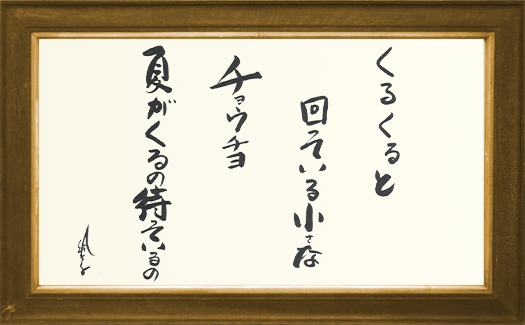 くるくると
回っている小さな
チョウチョ
夏がくるの待っているの